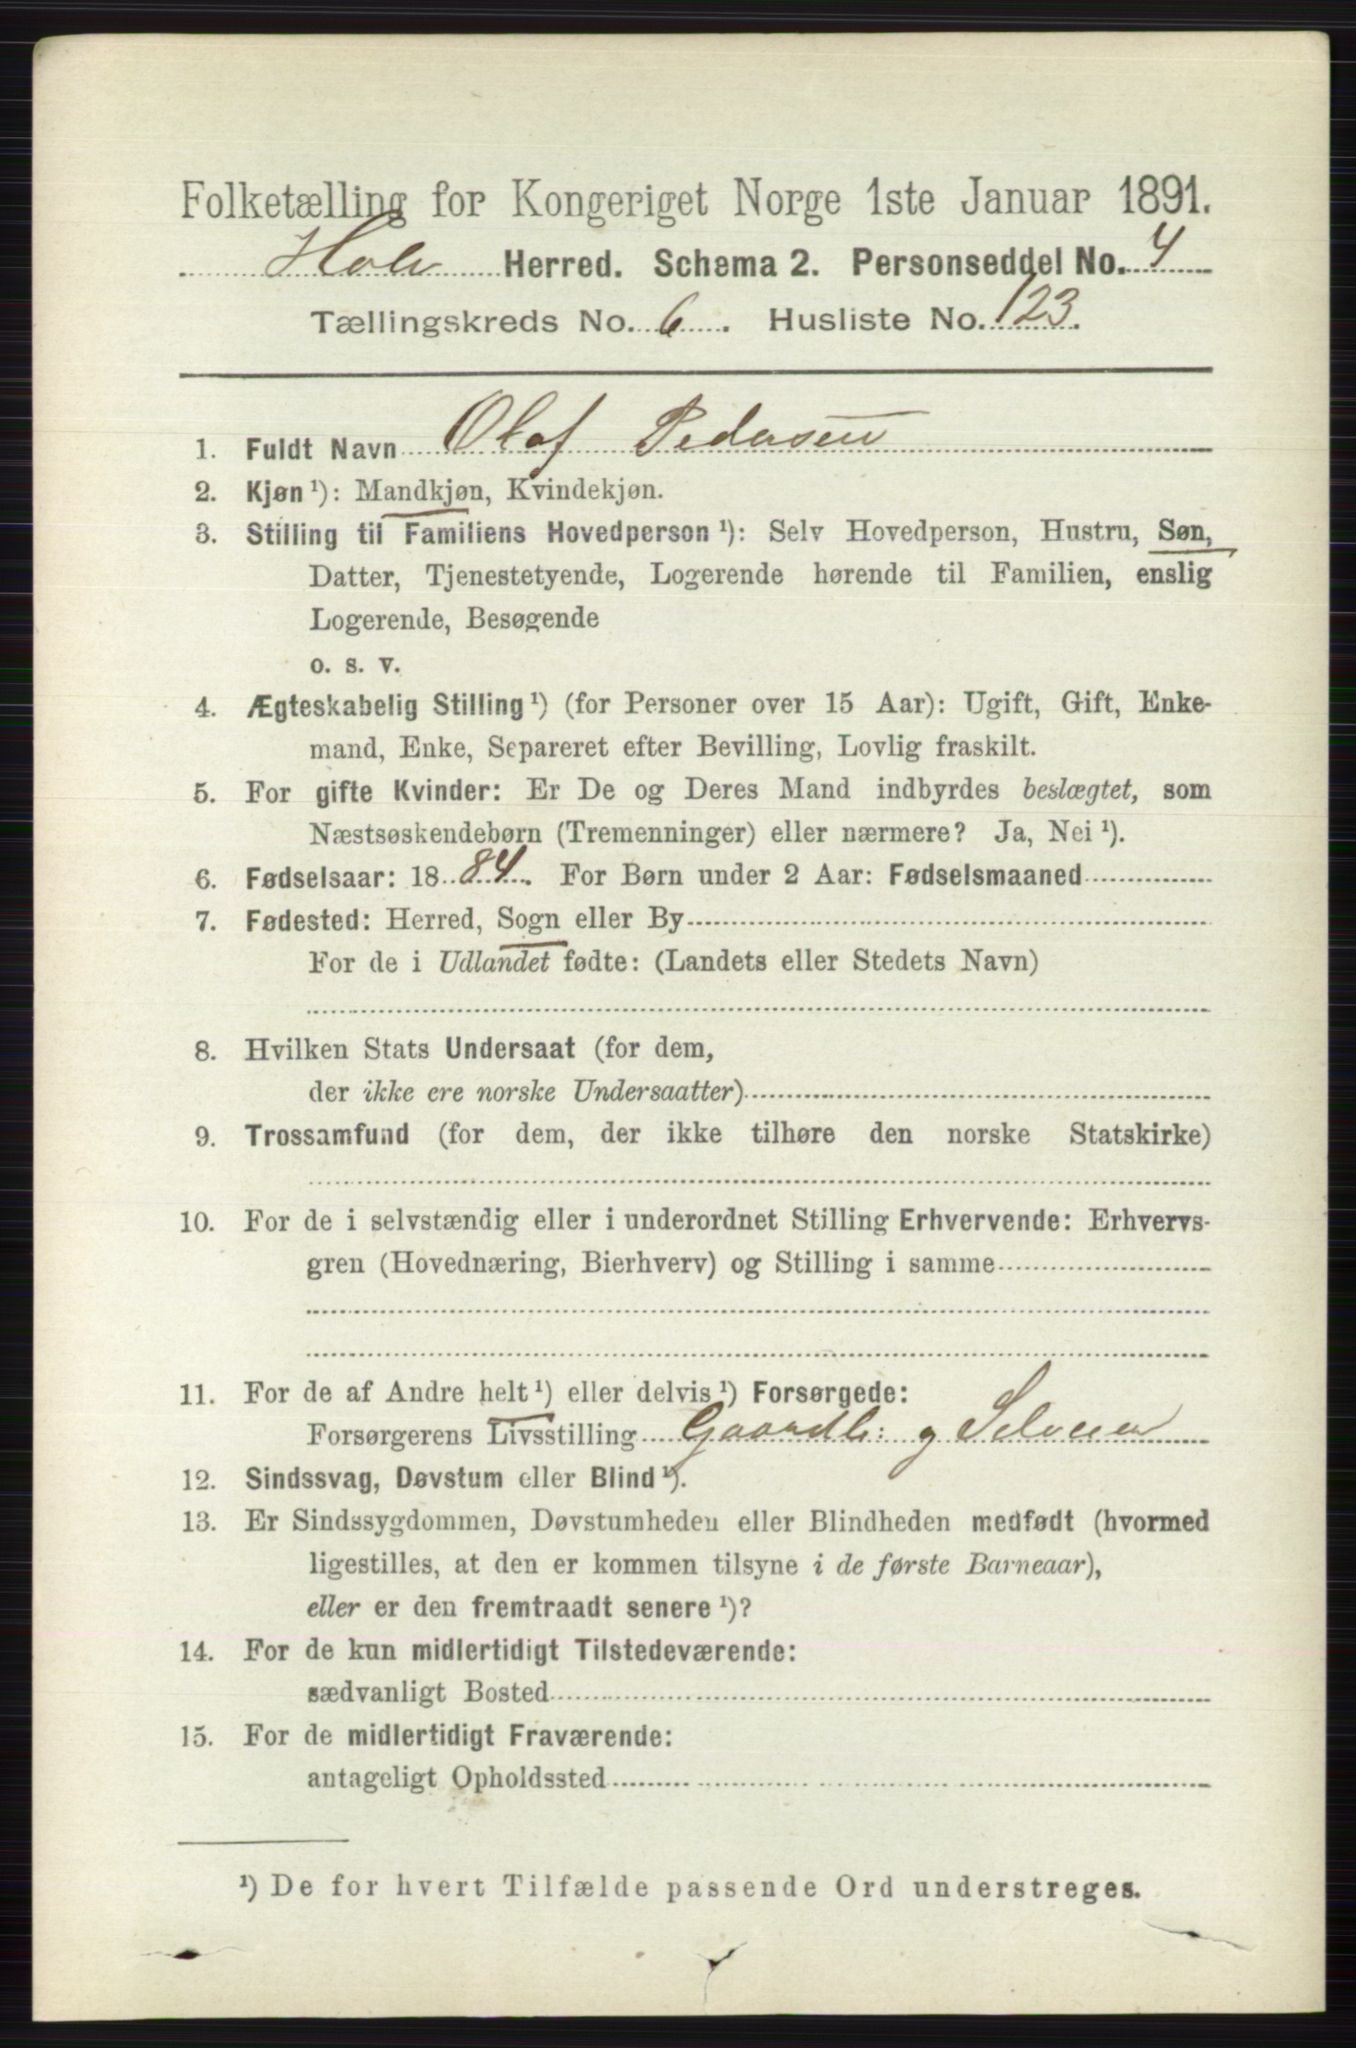 Folketælling for Kongeriget Norge 1ste Januar 1891.
Hole Herred. Schema 2. Personseddel No. 4
Tællingskreds No. 6. Husliste No. 123.
1. Fuldt Navn Olaf Pedersen
2. Kjøn ¹): Mandkjøn, Kvindekjøn.
3. Stilling til Familiens Hovedperson ¹): Selv Hovedperson, Hustru, Søn,
Datter, Tjenestetyende, Logerende hørende til Familien, enslig
Logerende, Besøgende
o. s. v.
4. Ægteskabelig Stilling ¹) (for Personer over 15 Aar): Ugift, Gift, Enke-
mand, Enke, Separeret efter Bevilling, Lovlig fraskilt.
5. For gifte Kvinder: Er De og Deres Mand indbyrdes beslægtet, som
Næstsøskendebørn (Tremenninger) eller nærmere? Ja, Nei ¹).
6. Fødselsaar: 1884. For Børn under 2 Aar: Fødselsmaaned
7. Fødested: Herred, Sogn eller By
For de i Udlandet fødte: (Landets eller Stedets Navn)
8. Hvilken Stats Undersaat (for dem,
der ikke ere norske Undersaatter)
9. Trossamfund (for dem, der ikke tilhøre den norske Statskirke)
10. For de i selvstændig eller i underordnet Stilling Erhvervende: Erhvervs-
gren (Hovednæring, Bierhverv) og Stilling i samme
11. For de af Andre helt ¹) eller delvis ¹) Forsørgede:
Forsørgerens Livsstilling Gaardb: og Selveier
12. Sindssvag, Døvstum eller Blind ¹).
13. Er Sindssygdommen, Døvstumheden eller Blindheden medfødt (hvormed
ligestilles, at den er kommen tilsyne i de første Barneaar),
eller er den fremtraadt senere ¹)?
14. For de kun midlertidigt Tilstedeværende:
sædvanligt Bosted
15. For de midlertidigt Fraværende:
antageligt Opholdssted
¹) De for hvert Tilfælde passende Ord understreges.